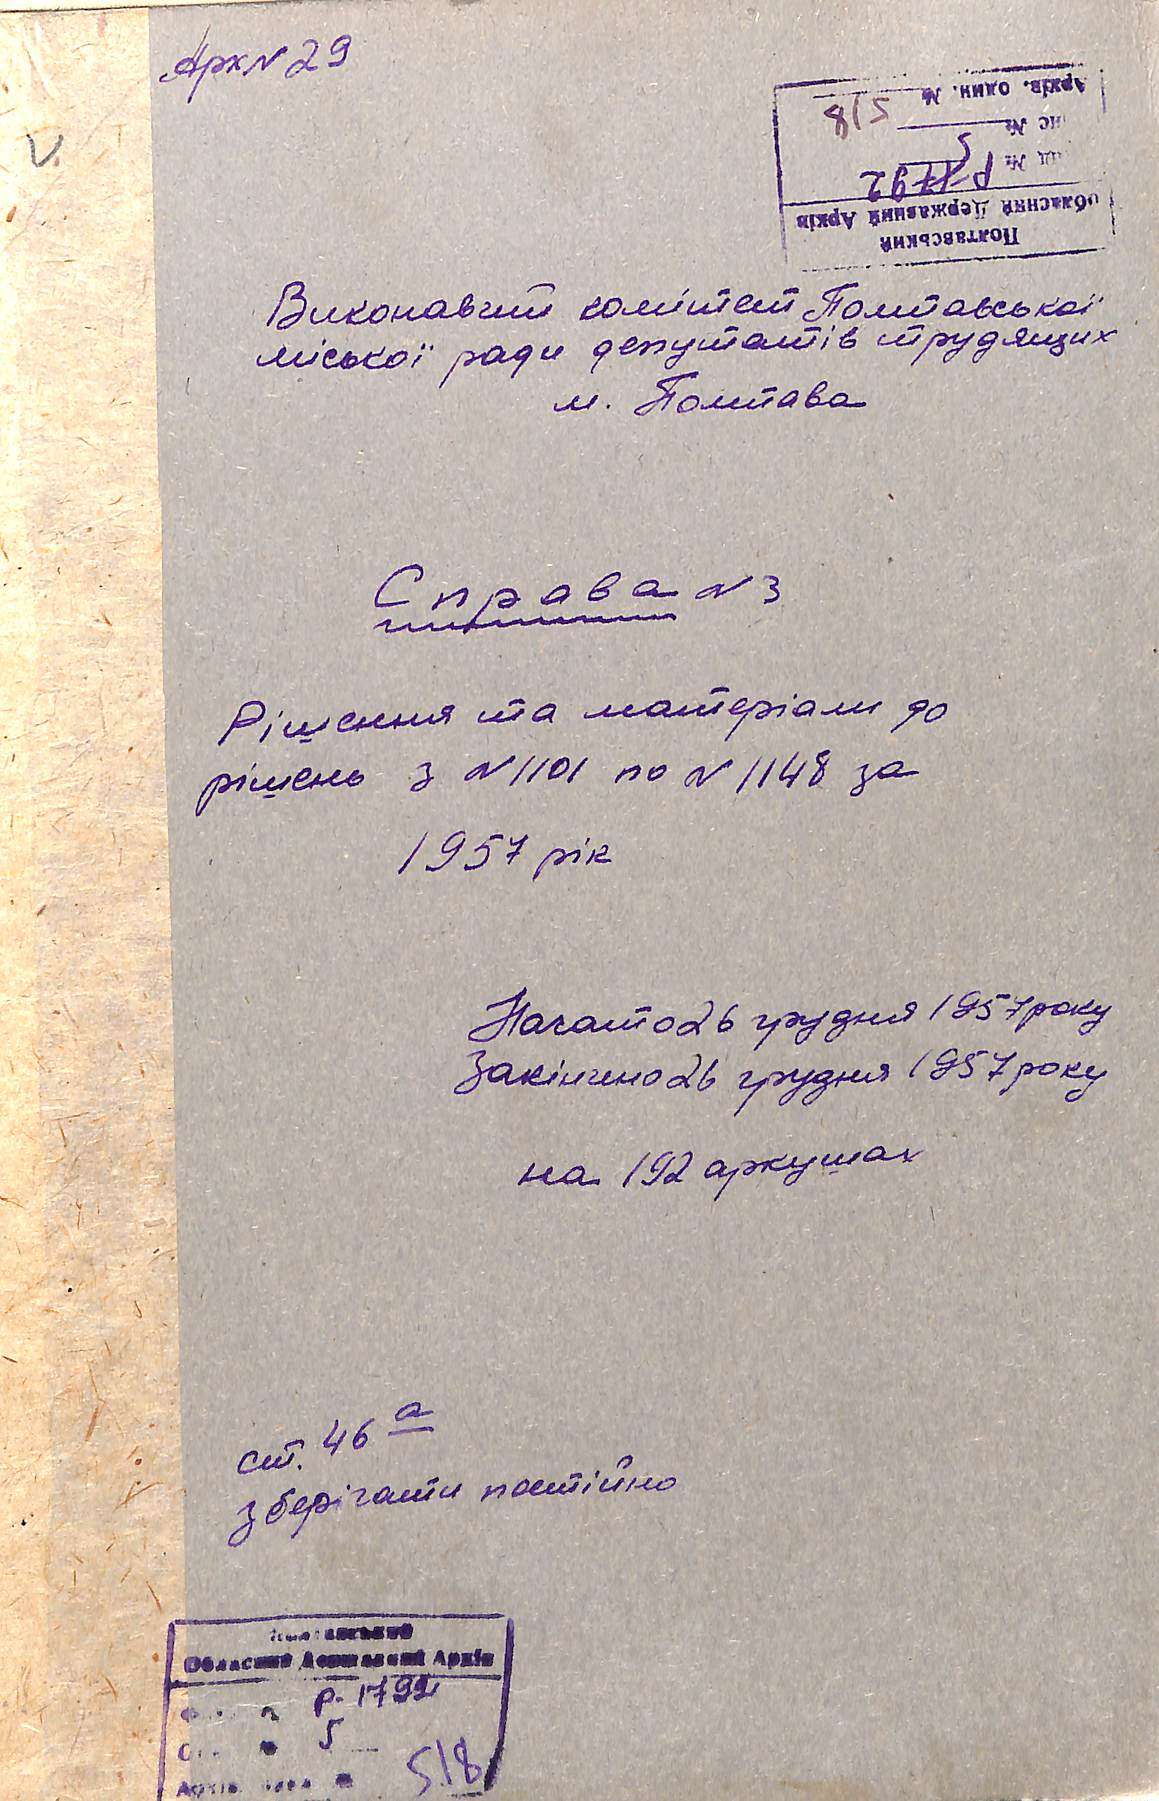 Арх N 29
Полтавський
Обласний Державний Архів
Р-1792
5
Архів. один. № 518
Виконавчий комітет Полтавської
міської ради депутатів трудящих
м. Полтава
Справа N 3
Рішення та матеріали до
рішень з N 1101 по N 1148 за
1957 рік
Начато 26 грудня 1957 року
Закінчено 26 грудня 1957 року
на 192 аркушах
ст. 46 а
зберігати постійно
Полтавський
Обласний Державний Архів
Р-1792
5
518